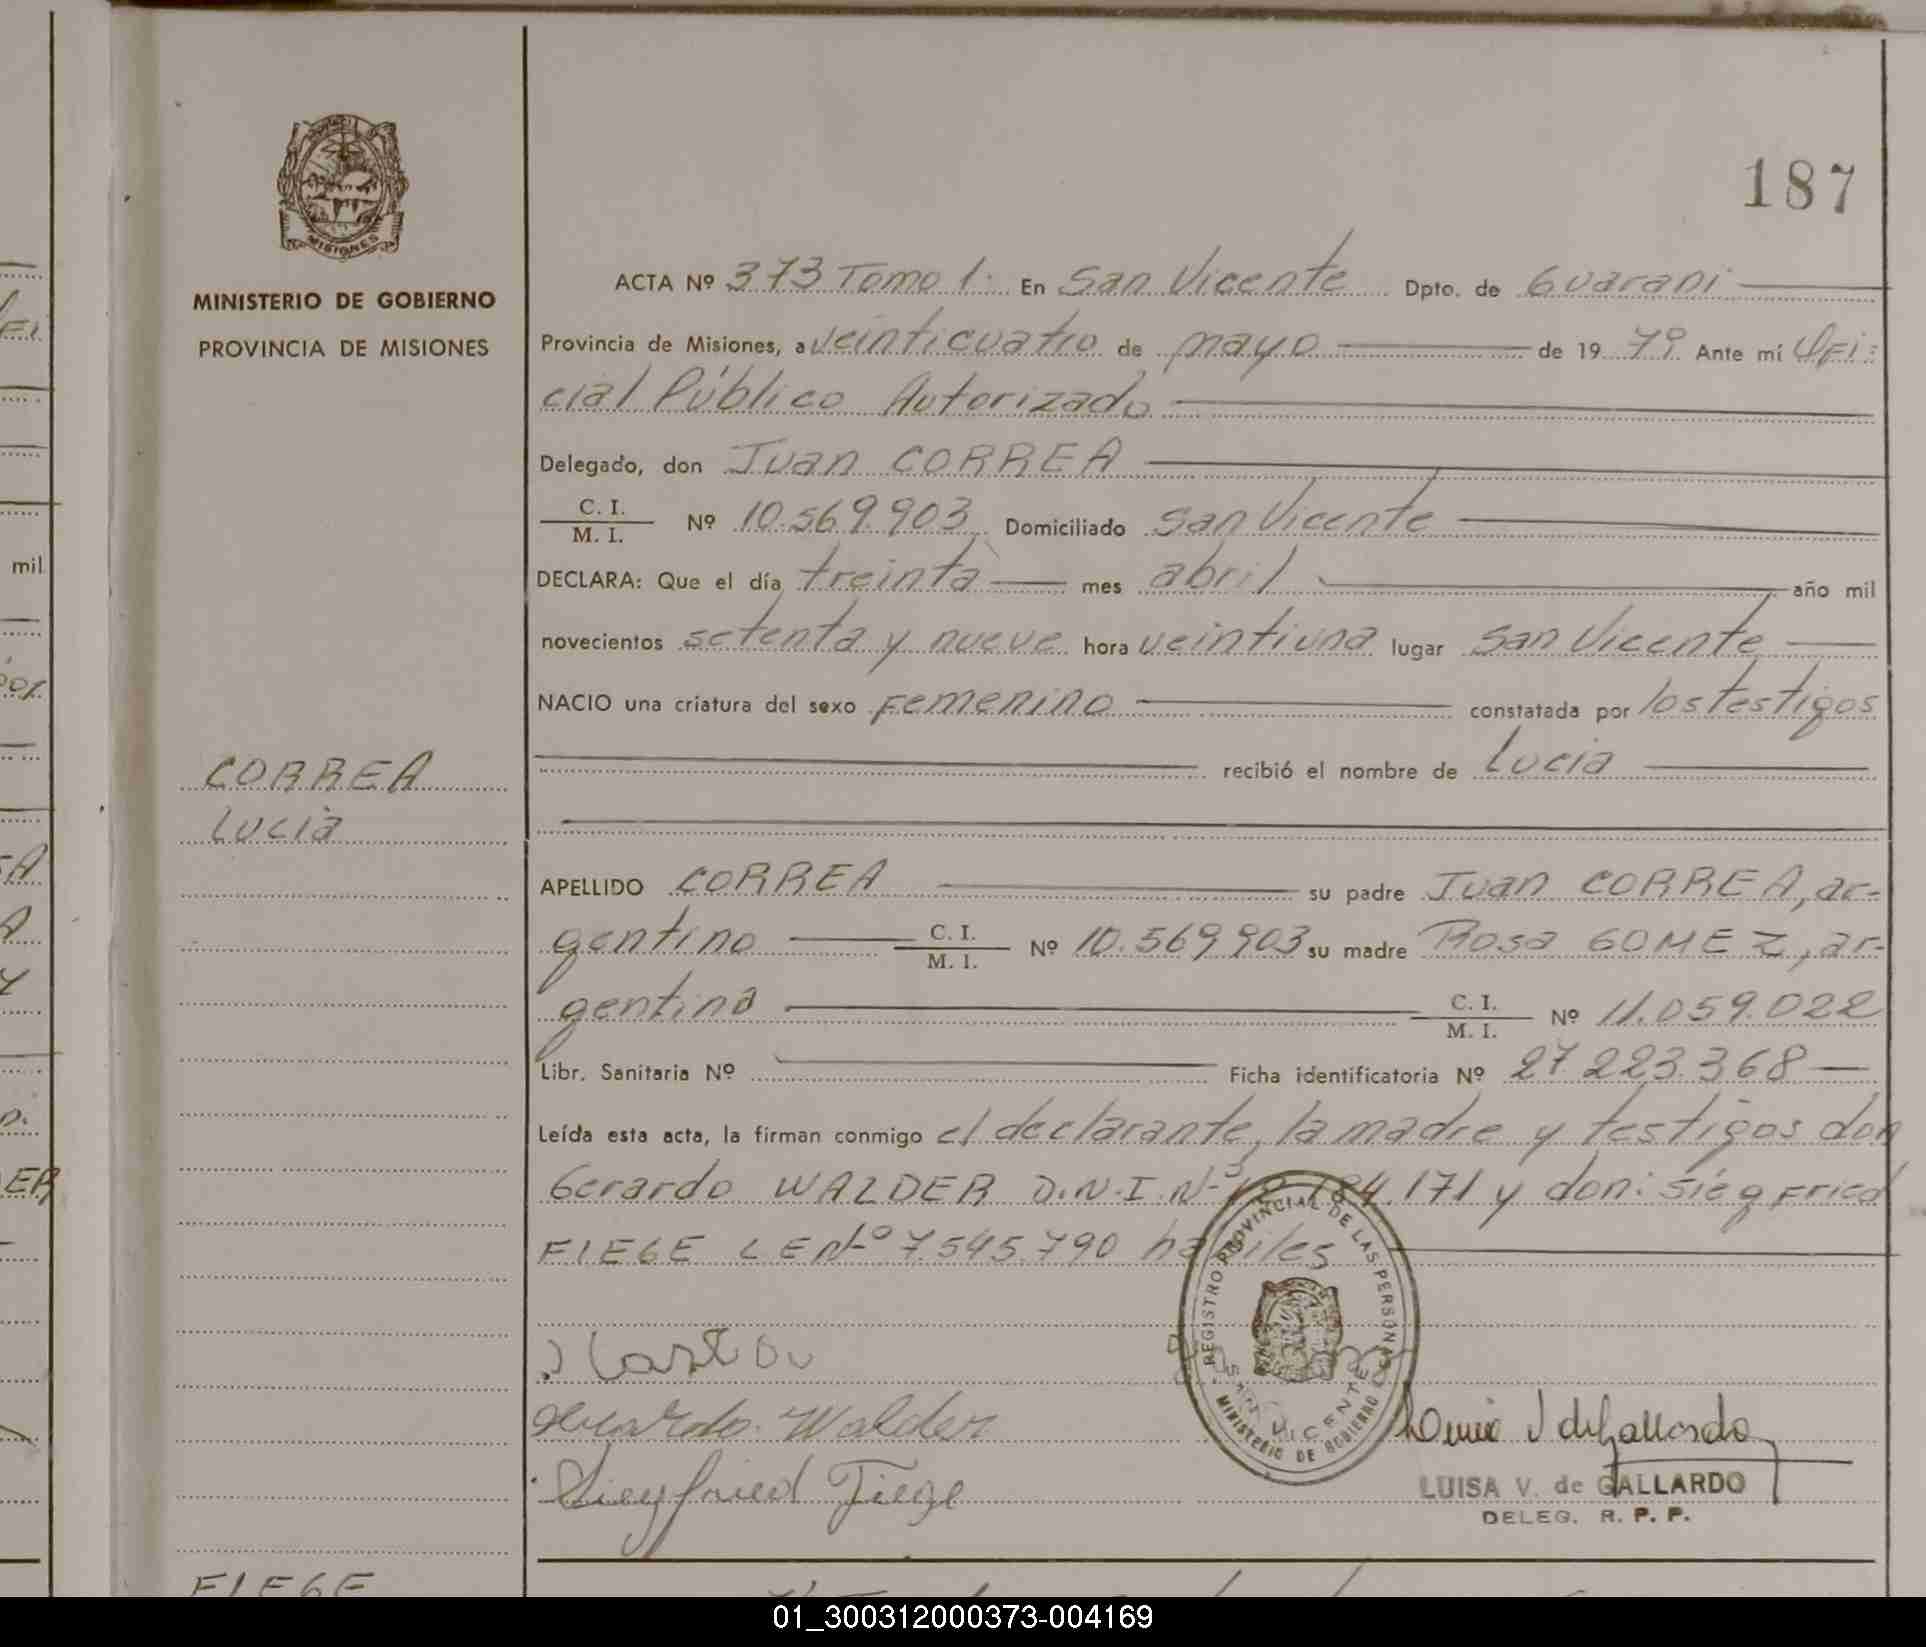 187
MISIONES
MINISTERIO DE GOBIERNO
PROVINCIA DE MISIONES
CORREA
Lucia
ACTA Nº 373 Tomo 1. En San Vicente Dpto. de Guarani
Provincia de Misiones, a veinticuatro de mayo de 19 79 Ante mí Ofi-
cial Público Autorizado
Delegado, don Juan CORREA
C. I.
M. I. Nº 10.569.903 Domiciliado San Vicente
DECLARA: Que el día treinta mes abril año mil
novecientos setenta y nueve hora veintiuna lugar San Vicente
NACIO una criatura del sexo Femenino constatada por los testigos
recibió el nombre de Lucia
APELLIDO CORREA su padre Juan CORREA, ar-
gentino C. I.
M. I. Nº 10.569.903 su madre Rosa GOMEZ, ar-
gentina C. I.
M. I. Nº 11.059.022
Libr. Sanitaria Nº Ficha identificatoria Nº 27.223.368
Leída esta acta, la firman conmigo el declarante, la madre y testigos don
Gerardo WALDER D.N.I. Nº 184.171 y don: Siegfried
FIEGE L E Nº 7.545.790 habiles
REGISTRO PROVINCIAL DE LAS PERSONAS
SAN VICENTE
MINISTERIO DE GOBIERNO
Gerardo Walder
Siegfried Fiege
LUISA V. de GALLARDO
DELEG. R. P. P.
FIEGE
01_300312000373-004169